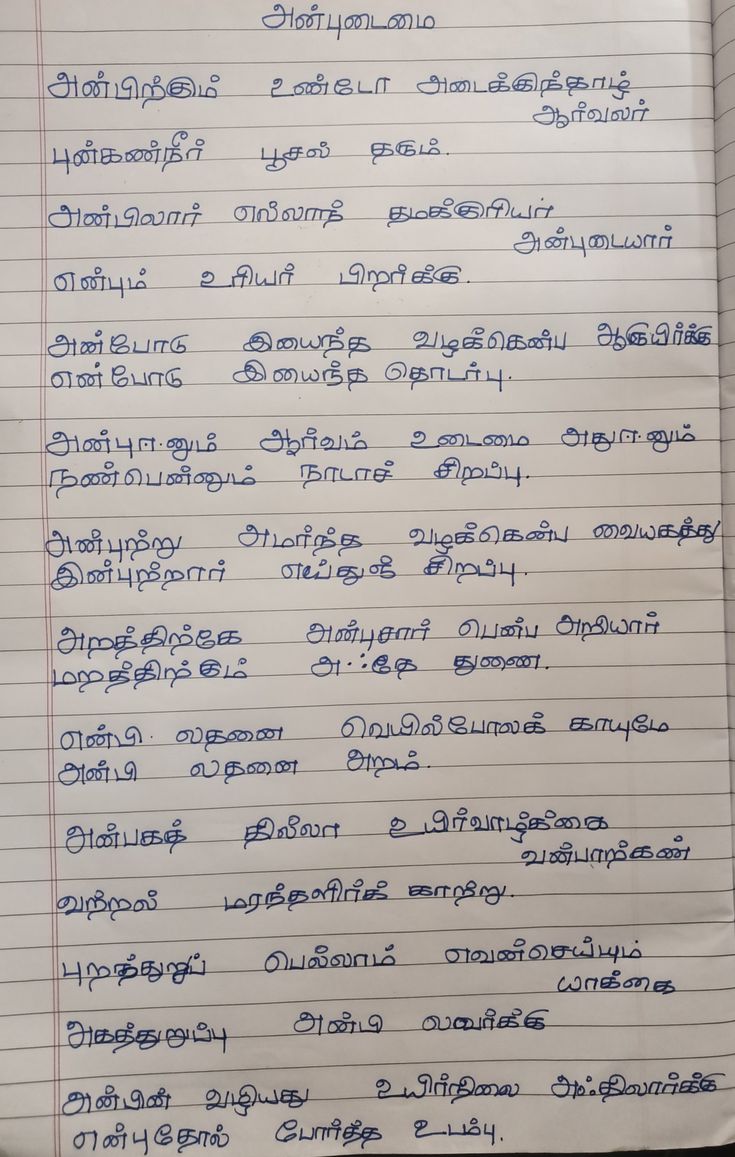 அன்புடைமை
அன்பிற்கும் உண்டோ அடைக்குந்தாழ்
ஆர்வலர்
புன்கண்நீர் பூசல் தரும்.
அன்பிலார் எல்லாந் தமக்குரியர்
அன்புடையார்
என்பும் உரியர் பிறர்க்கு.
அன்போடு இயைந்த வழக்கென்ப ஆருயிர்க்கு
என்போடு இயைந்த தொடர்பு.
அன்புஈனும் ஆர்வம் உடைமை அதுஈனும்
நண்பென்னும் நாடாச் சிறப்பு.
அன்புற்று அமர்ந்த வழக்கென்ப வையகத்து
இன்புற்றார் எய்துஞ் சிறப்பு.
அறத்திற்கே அன்புசார் பென்ப அறியார்
மறத்திற்கும் அஃதே துணை.
என்பி லதனை வெயில்போலக் காயுமே
அன்பி லதனை அறம்.
அன்பகத் தில்லா உயிர்வாழ்க்கை
வன்பாற்கண்
வற்றல் மரந்தளிர்க் காற்று.
புறத்துறுப் பெல்லாம் எவன்செய்யும்
யாக்கை
அகத்துறுப்பு அன்பி லவர்க்கு
அன்பின் வழியது உயிர்நிலை அஃதிலார்க்கு
என்புதோல் போர்த்த உடம்பு.